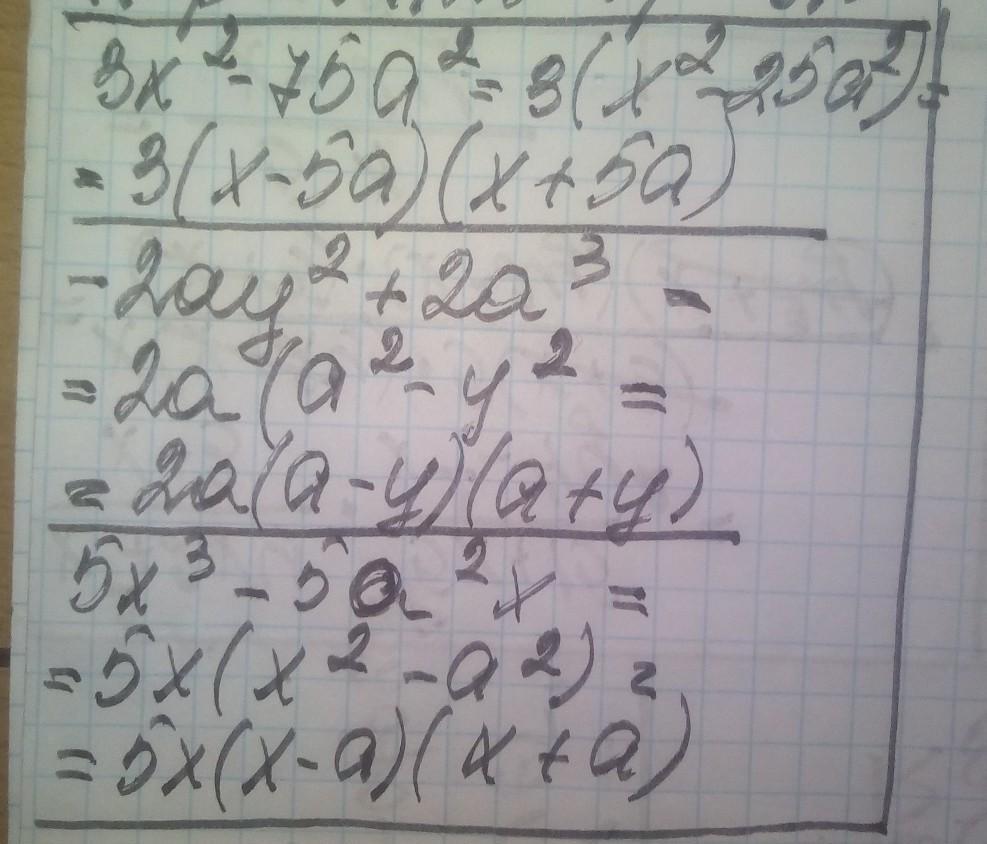 3x² - 75a² = 3(x² - 25a²) =
= 3(x - 5a)(x + 5a)
- 2ay² + 2a³ -
= 2a(a² - y² =
= 2a(a - y)(a + y)
5x³ - 5a²x =
= 5x(x² - a²) =
= 5x(x - a)(x + a)